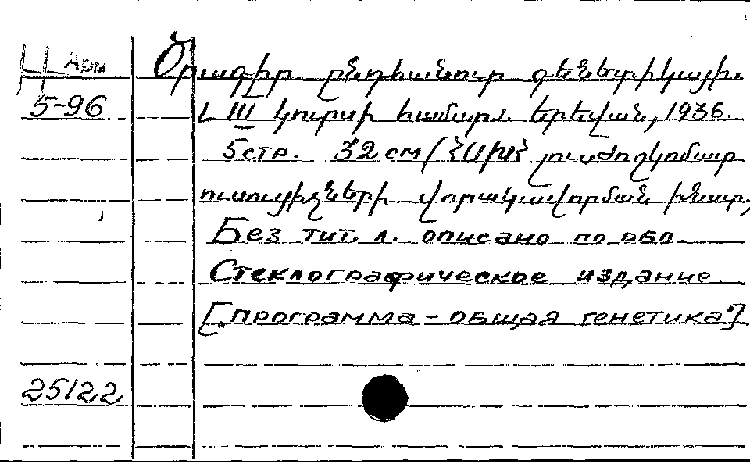 Ц Арм
5-96
Ծրագիր ընդհանուր գենետիկայի.
L III կուրսի համար. Երեվան, 1936.
5 стр. 32 см / {ԱԽՍՀ լուսժողկոմատ
ուսուցիչների վորակավորման ինստ,
Без тит. л. описано по обл
Стеклографическое издание
["программа - общая генетика"]
25122